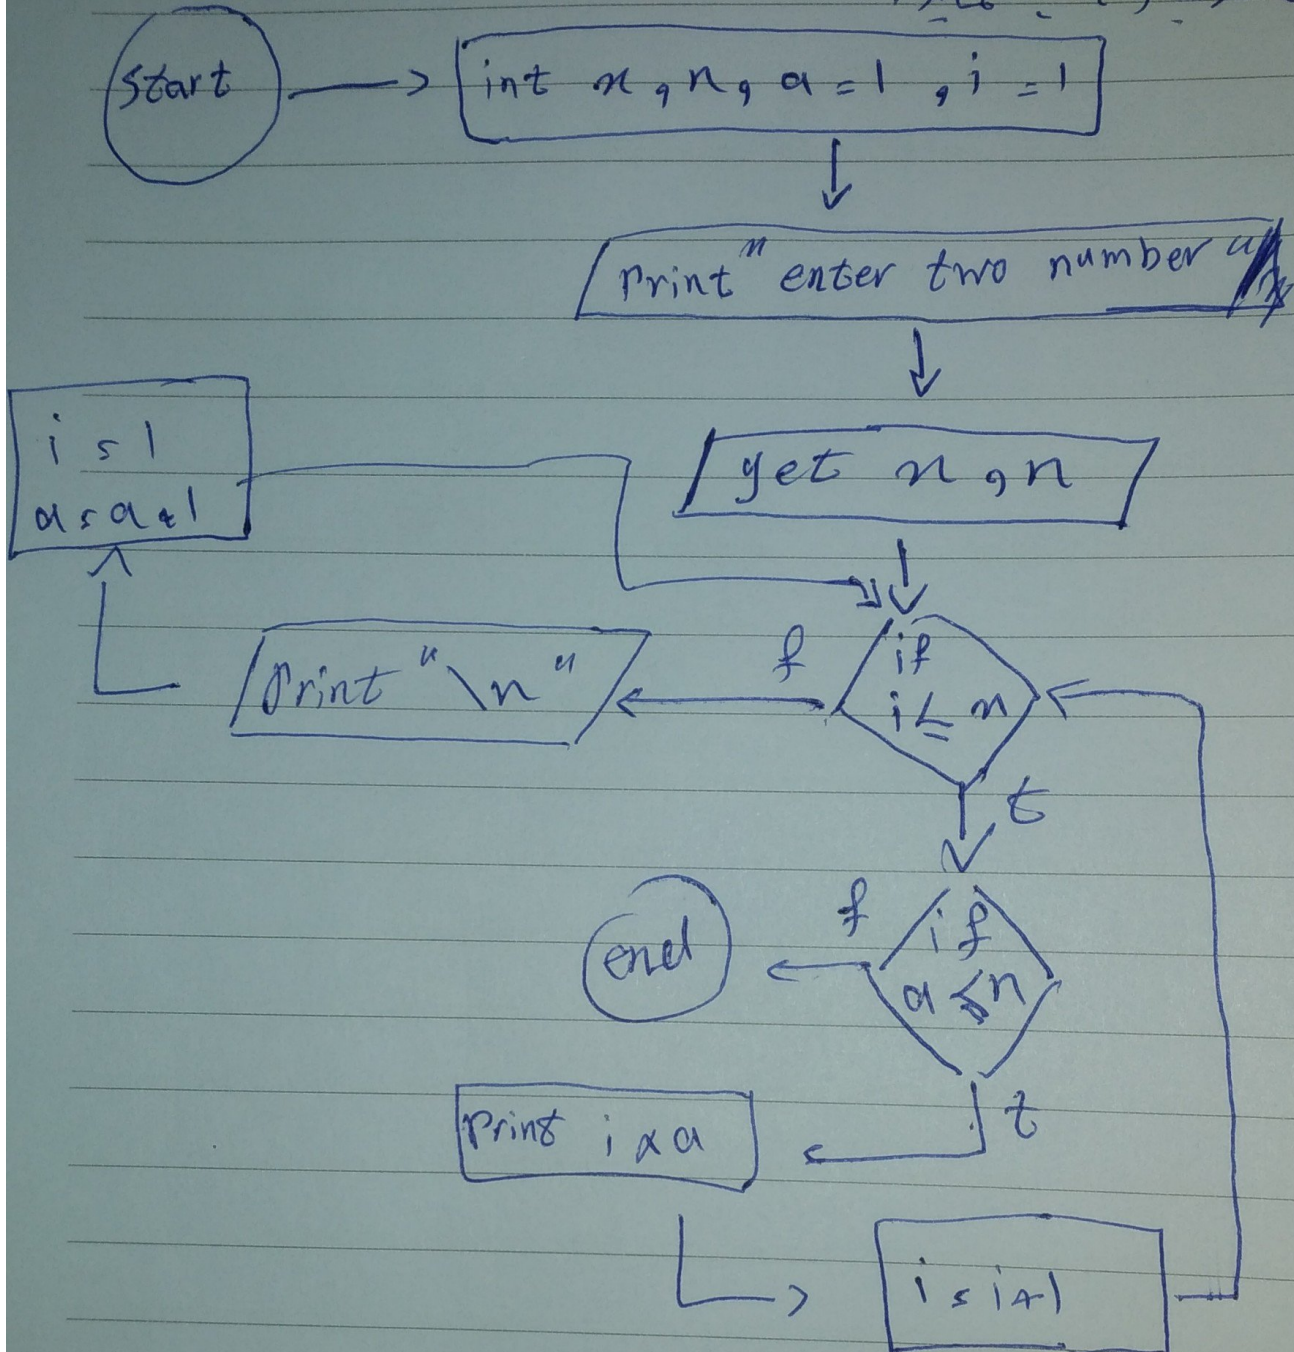 start
int x, n, a = 1, i = 1
print "enter two number"
get x, n
i = 1
a = a + 1
if
i ≤ x
f
print "\n"
t
if
a ≤ n
f
end
t
print i × a
i = i + 1